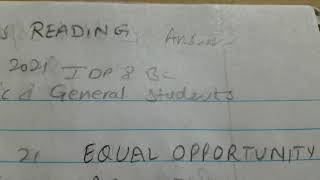 READING
2021 IDP & BC
General Students
21 EQUAL OPPORTUNITY